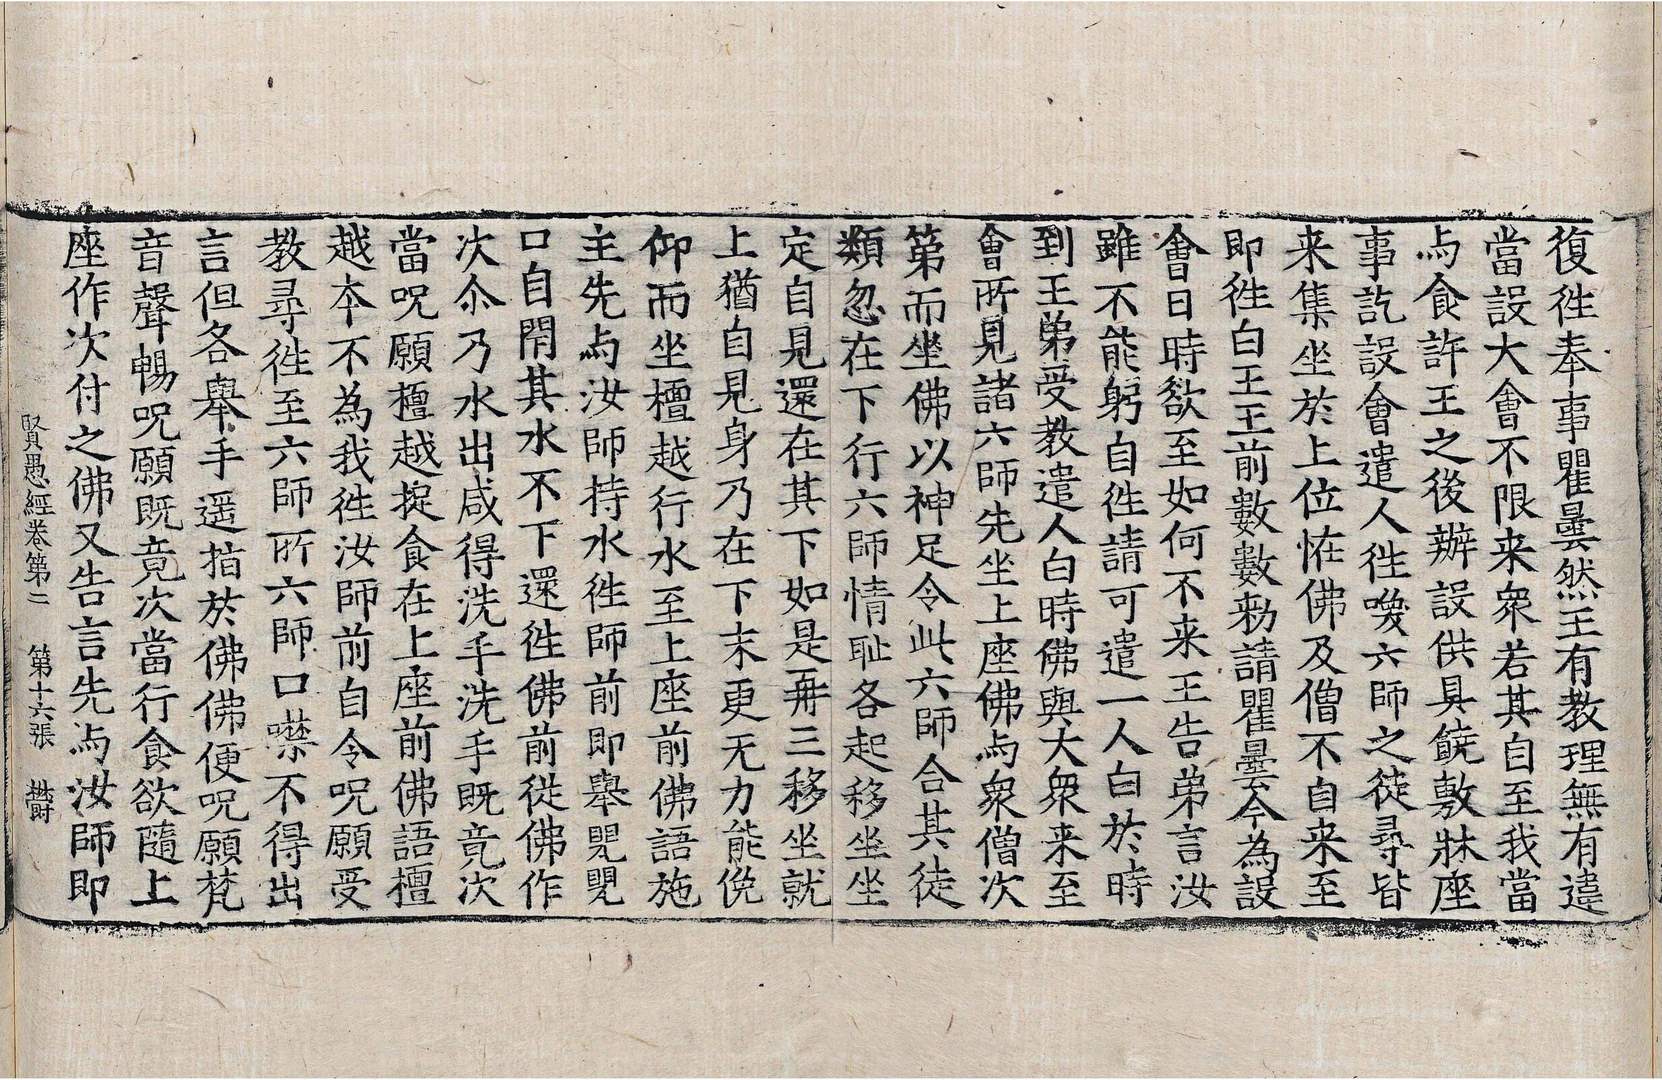 復徃奉事瞿曇然王有教理無有違
當設大會不限来衆若其自至我當
与食許王之後辦設供具饒敷牀座
事訖設會遣人徃喚六師之徒尋皆
来集坐於上位恠佛及僧不自来至
即徃白王王前數數勑請瞿曇今為設
會日時欲至如何不来王告弟言汝
雖不能躬自徃請可遣一人白於時
到王弟受教遣人白時佛與大衆来至
會所見諸六師先坐上座佛与衆僧次
第而坐佛以神足令此六師合其徒
類忽在下行六師情恥各起移坐坐
定自見還在其下如是再三移坐就
上猶自見身乃在下末更无力能俛
仰而坐檀越行水至上座前佛語施
主先与汝師持水徃師前即舉甖甖
口自閇其水不下還徃佛前從佛作
次尒乃水出咸得洗手洗手既竟次
當呪願檀越㨝食在上座前佛語檀
越夲不為我徃汝師前自令呪願受
教尋徃至六師所六師口噤不得出
言但各舉手遥指於佛佛便呪願梵
音聲暢呪願既竟次當行食欲隨上
座作次付之佛又告言先与汝師即
賢愚經卷第二　第十六張　欝